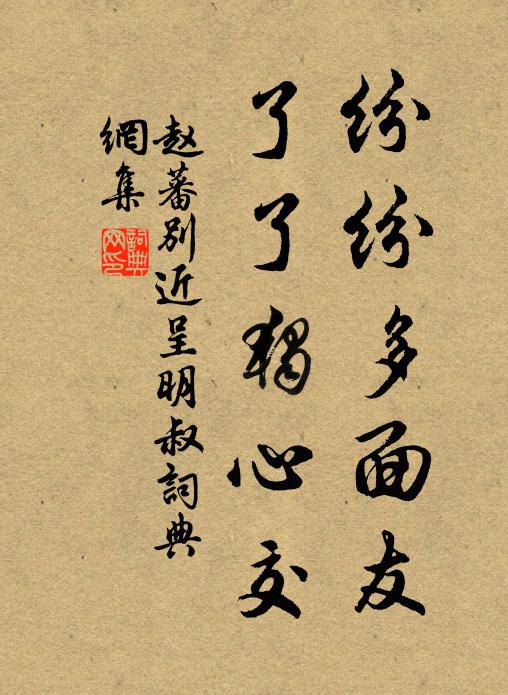 纷纷多面友
了了独心交
赵蕃别近呈明叔詞典
網集
詞典
网印